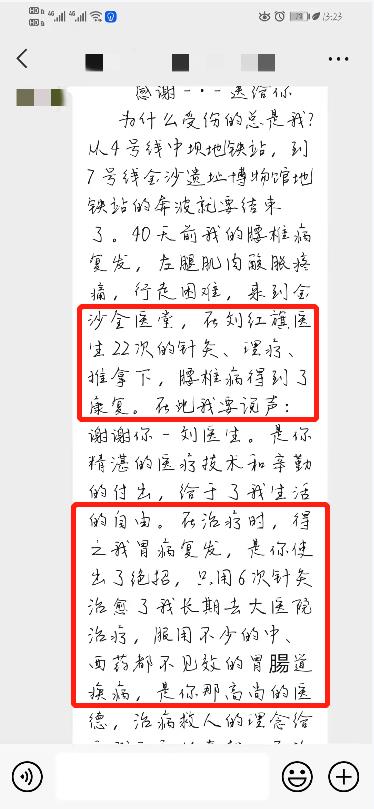 13:23
感谢一·一送给你
为什么受伤的总是我?
从4号线中坝地铁站，到
7号线金沙遗址博物馆地
铁站的奔波就要结束
了。40天前我的腰椎病
复发，左腿肌肉酸胀疼
痛，行走困难，来到金
沙金医堂，在刘红旗医
生22次的针灸、理疗、
推拿下，腰椎病得到了
康复。在此我要说声：
谢谢你一刘医生。是你
精湛的医疗技术和辛勤
的付出，给于了我生活
的自由。在治疗时，得
之我胃病复发，是你使
出了绝招，只用6次针灸
治愈了我长期去大医院
治疗，服用不少的中、
西药都不见效的胃腸道
疾病，是你那高尚的医
德，治病救人的理念给